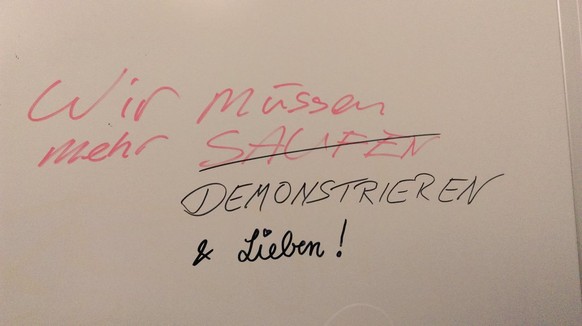 Wir müssen
mehr SAUFEN
DEMONSTRIEREN
& Lieben!